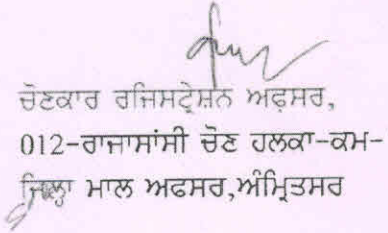 ਚੋਣਕਾਰ ਰਜਿਸਟ੍ਰੇਸ਼ਨ ਅਫ਼ਸਰ,
012-ਰਾਜਾਸਾਂਸੀ ਚੋਣ ਹਲਕਾ-ਕਮ-
ਜਿਲ੍ਹਾ ਮਾਲ ਅਫਸਰ,ਅੰਮ੍ਰਿਤਸਰ